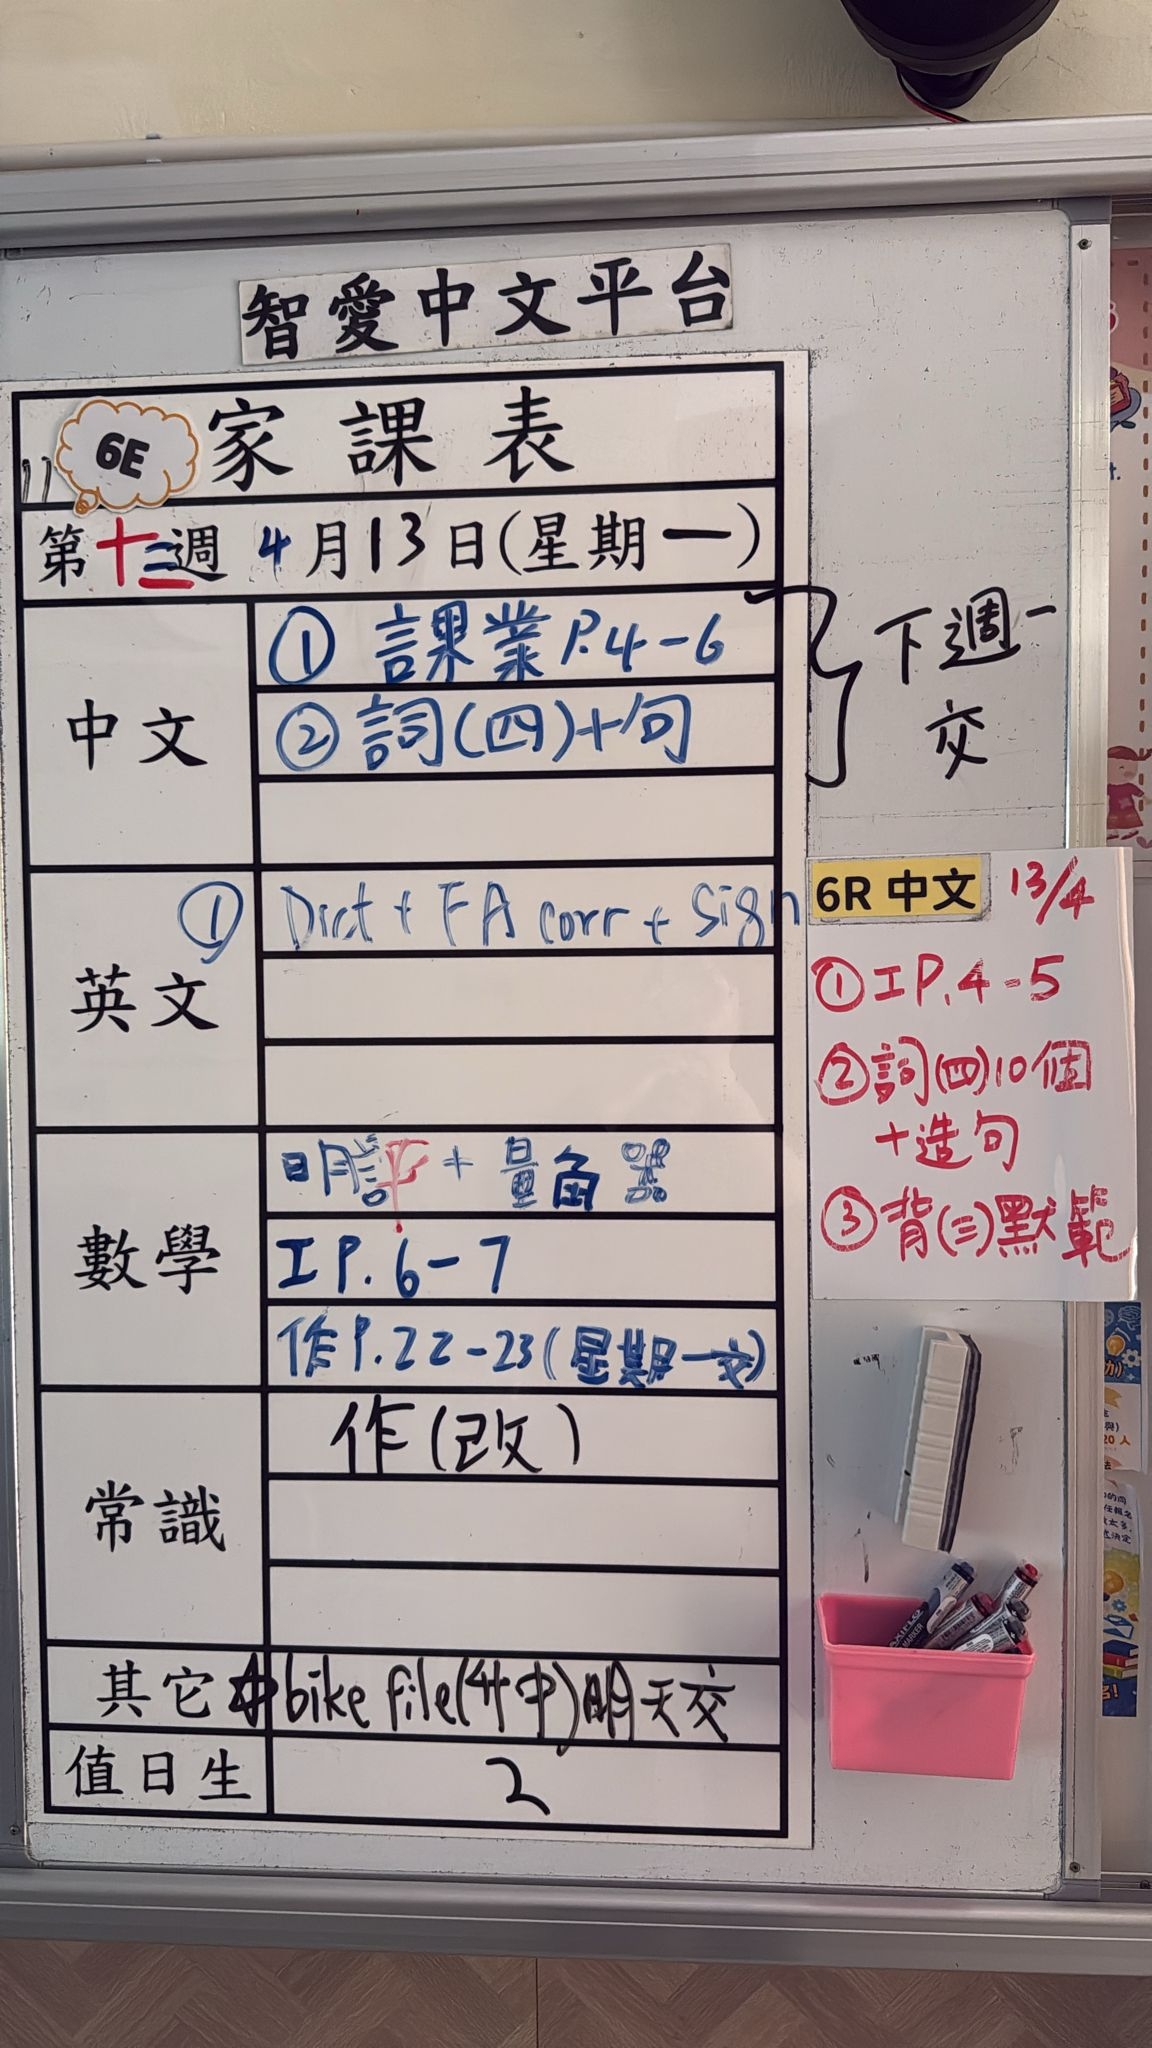 智愛中文平台
6E 家課表
第十三週 4月13日(星期一)
中文
① 課業 P.4-6
② 詞(四)+句
下週一
交
英文
① Dict + FA corr + Sign
數學
明評 + 量角器
I P. 6-7
作 P. 22-23 (星期一交)
常識
作(改)
其它
bike file(4中)明天交
值日生
2
6R 中文 13/4
① I P.4-5
② 詞(四)10個
+造句
③ 背(三)默範
20人